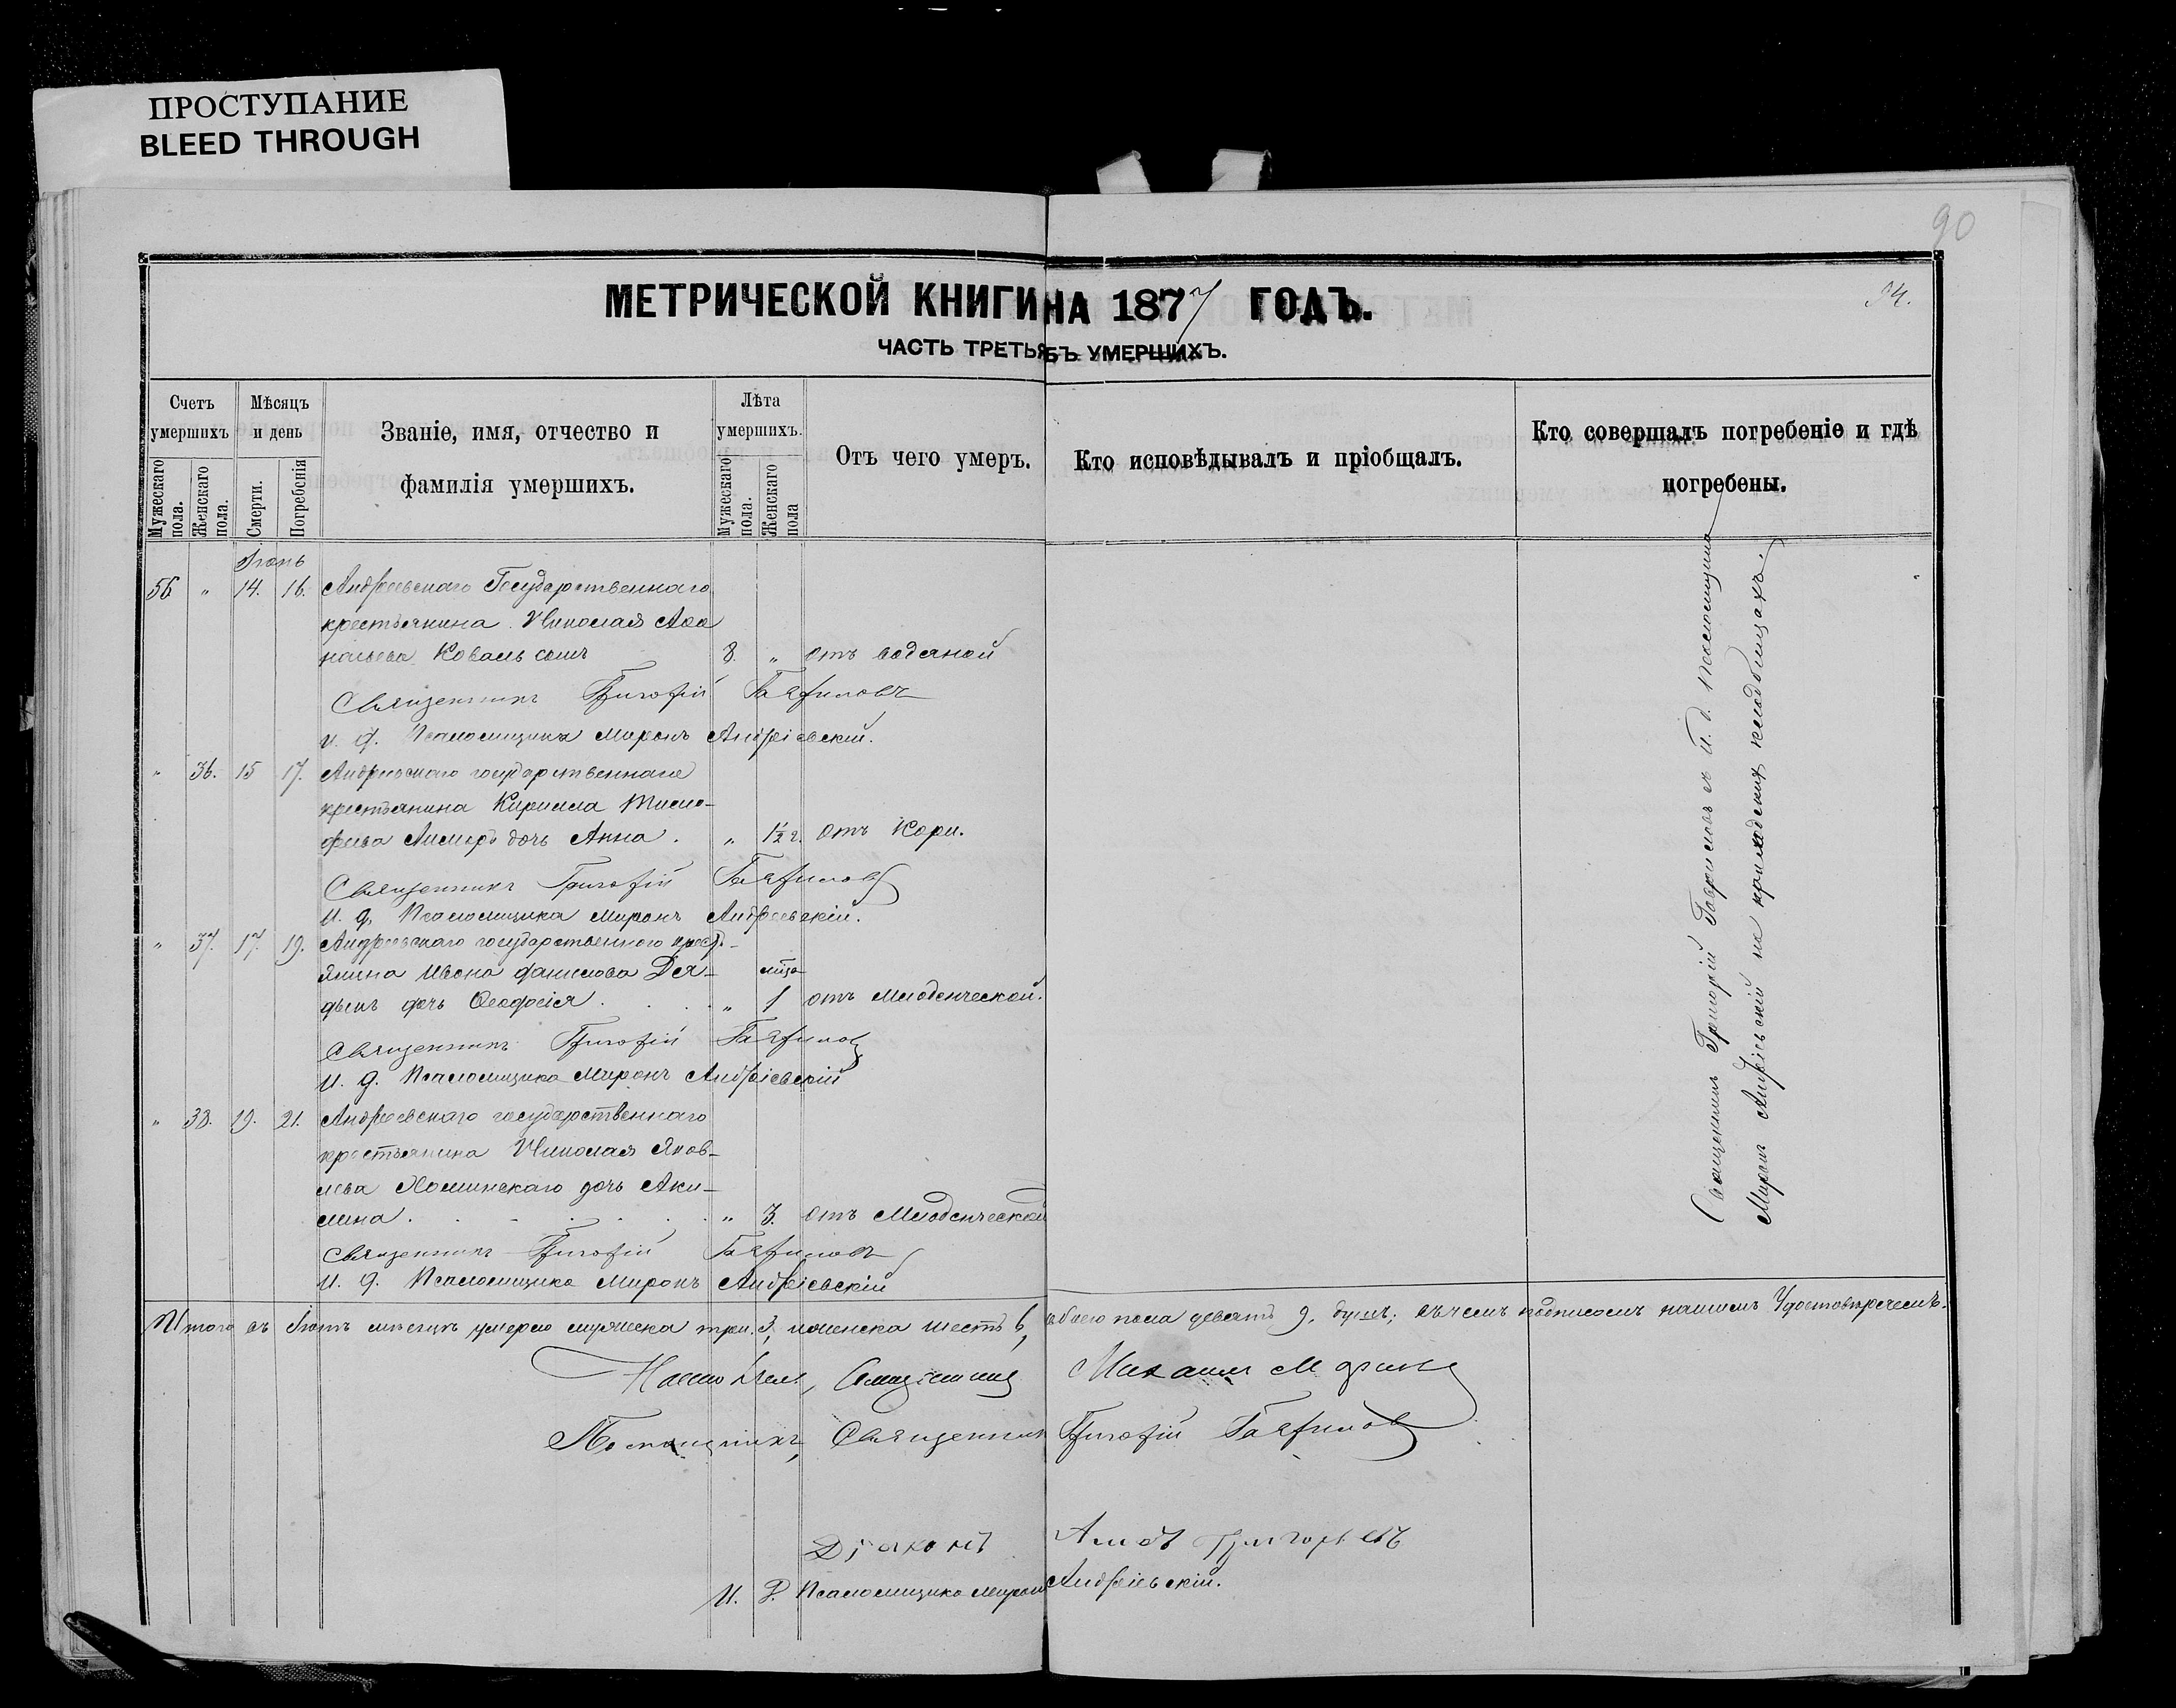 ПРОСТУПАНИЕ
BLEED THROUGH
90
МЕТРИЧЕСКОЙ КНИГИ НА 1877 ГОДЪ.
54.
ЧАСТЬ ТРЕТЬЯ УМЕРШИХЪ.
Счетъ умершихъ
Мѣсяцъ и день
Званіе, имя, отчество и фамилія умершихъ.
Лѣта умершихъ.
Отъ чего умеръ.
Кто исповѣдывалъ и пріобщалъ.
Кто совершалъ погребеніе и гдѣ погребены.
Мужескаго пола.
Женскаго пола.
Смерти.
Погребенія
Мужескаго пола.
Женскаго пола
Іюнь
56 " 14. 16. Андреевскаго Государственнаго
крестьянина Николая
Коваль сынъ 8. " отъ водяной
Священникъ Григорій Гавриловъ
И. д. Псаломщика Миронъ Андріевскій.
" 36. 15 17. Андреевскаго государственнаго
крестьянина Кирилла Тимо-
феева дочь Анна. " 1½ г. отъ Кори.
Священникъ Григорій Гавриловъ
И. д. Псаломщика Миронъ Андреевскій.
" 37. 17. 19. Андреевскаго государственного крест-
янина Ивана Данилова Дея-
дочь Феодосія. " 1 отъ Младенческой.
Священникъ Григорій Гавриловъ
И. д. Псаломщика Миронъ Андріевскій
" 38. 19. 21. Андреевскаго государственнаго
крестьянина Николая Яков-
лева Хоминскаго дочь Аки-
лина. " 3. отъ Младенческой
Священникъ Григорій Гавриловъ
И. д. Псаломщика Миронъ Андріевскій
Священникъ Григорій Гавриловъ съ И. д. Псаломщика
Миронъ Андріевскій на приходскихъ кладбищахъ.
Итого въ Іюнѣ мѣсяцѣ умерло мужеска три 3, женска шесть 6, обоего пола девять 9. душъ; въ чемъ подписомъ нашимъ Удостовѣряемъ.
Настоятель, Священникъ Михаилъ
Помощникъ, Священникъ Григорій Гавриловъ
Діаконъ Григорьевъ
И. д. Псаломщика Миронъ Андріевскій.